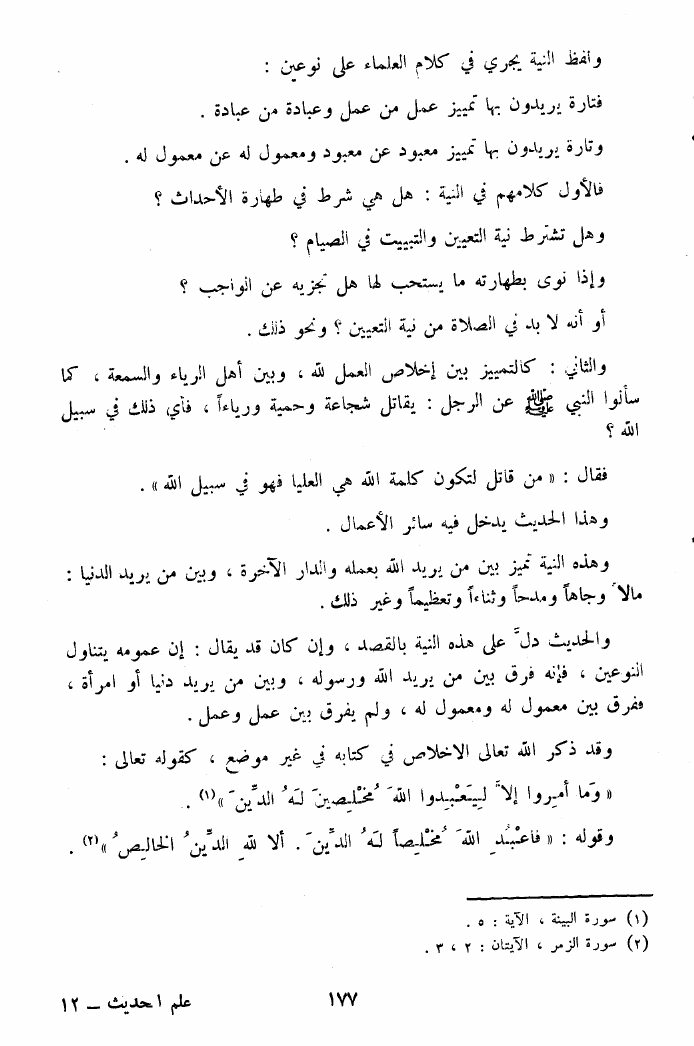 ولفظ النية يجري في كلام العلماء على نوعين :
فتارة يريدون بها تمييز عمل من عمل وعبادة من عبادة .
وتارة يريدون بها تمييز معبود عن معبود ومعمول له عن معمول له .
فالأول كلامهم في النية : هل هي شرط في طهارة الأحداث ؟
وهل تشترط نية التعيين والتبييت في الصيام ؟
وإذا نوى بطهارته ما يستحب لها هل تجزيه عن الواجب ؟
أو أنه لا بد في الصلاة من نية التعيين ؟ ونحو ذلك .
والثاني : كالتمييز بين إخلاص العمل لله ، وبين أهل الرياء والسمعة ، كما
سألوا النبي ﷺ عن الرجل : يقاتل شجاعة وحمية ورياءاً ، فأي ذلك في سبيل
الله ؟
فقال : « من قاتل لتكون كلمة الله هي العليا فهو في سبيل الله » .
وهذا الحديث يدخل فيه سائر الأعمال .
وهذه النية تميز بين من يريد الله بعمله والدار الآخرة ، وبين من يريد الدنيا :
مالاً وجاهاً ومدحاً وثناءاً وتعظيماً وغير ذلك .
والحديث دلَّ على هذه النية بالقصد ، وإن كان قد يقال : إن عمومه يتناول
النوعين ، فإنه فرق بين من يريد الله ورسوله ، وبين من يريد دنيا أو امرأة ،
ففرق بين معمول له ومعمول له ، ولم يفرق بين عمل وعمل .
وقد ذكر الله تعالى الاخلاص في كتابه في غير موضع ، كقوله تعالى :
« وَما أُمِروا إلاَّ لِيَعْبِدوا اللهَ مُخْلِصينَ لَهُ الدِّينَ »(١) .
وقوله : « فاعْبُدِ اللهَ مُخْلِصاً لَهُ الدِّينَ . ألا للهِ الدِّينُ الخالِصُ »(٢) .
(١) سورة البينة ، الآية : ٥ .
(٢) سورة الزمر ، الآيتان : ٢ ، ٣ .
١٧٧
علم الحديث – ١٢